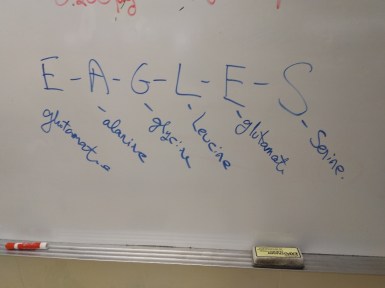 E-A-G-L-E-S
glutamate
alanine
glycine
Leucine
glutamate
Serine.